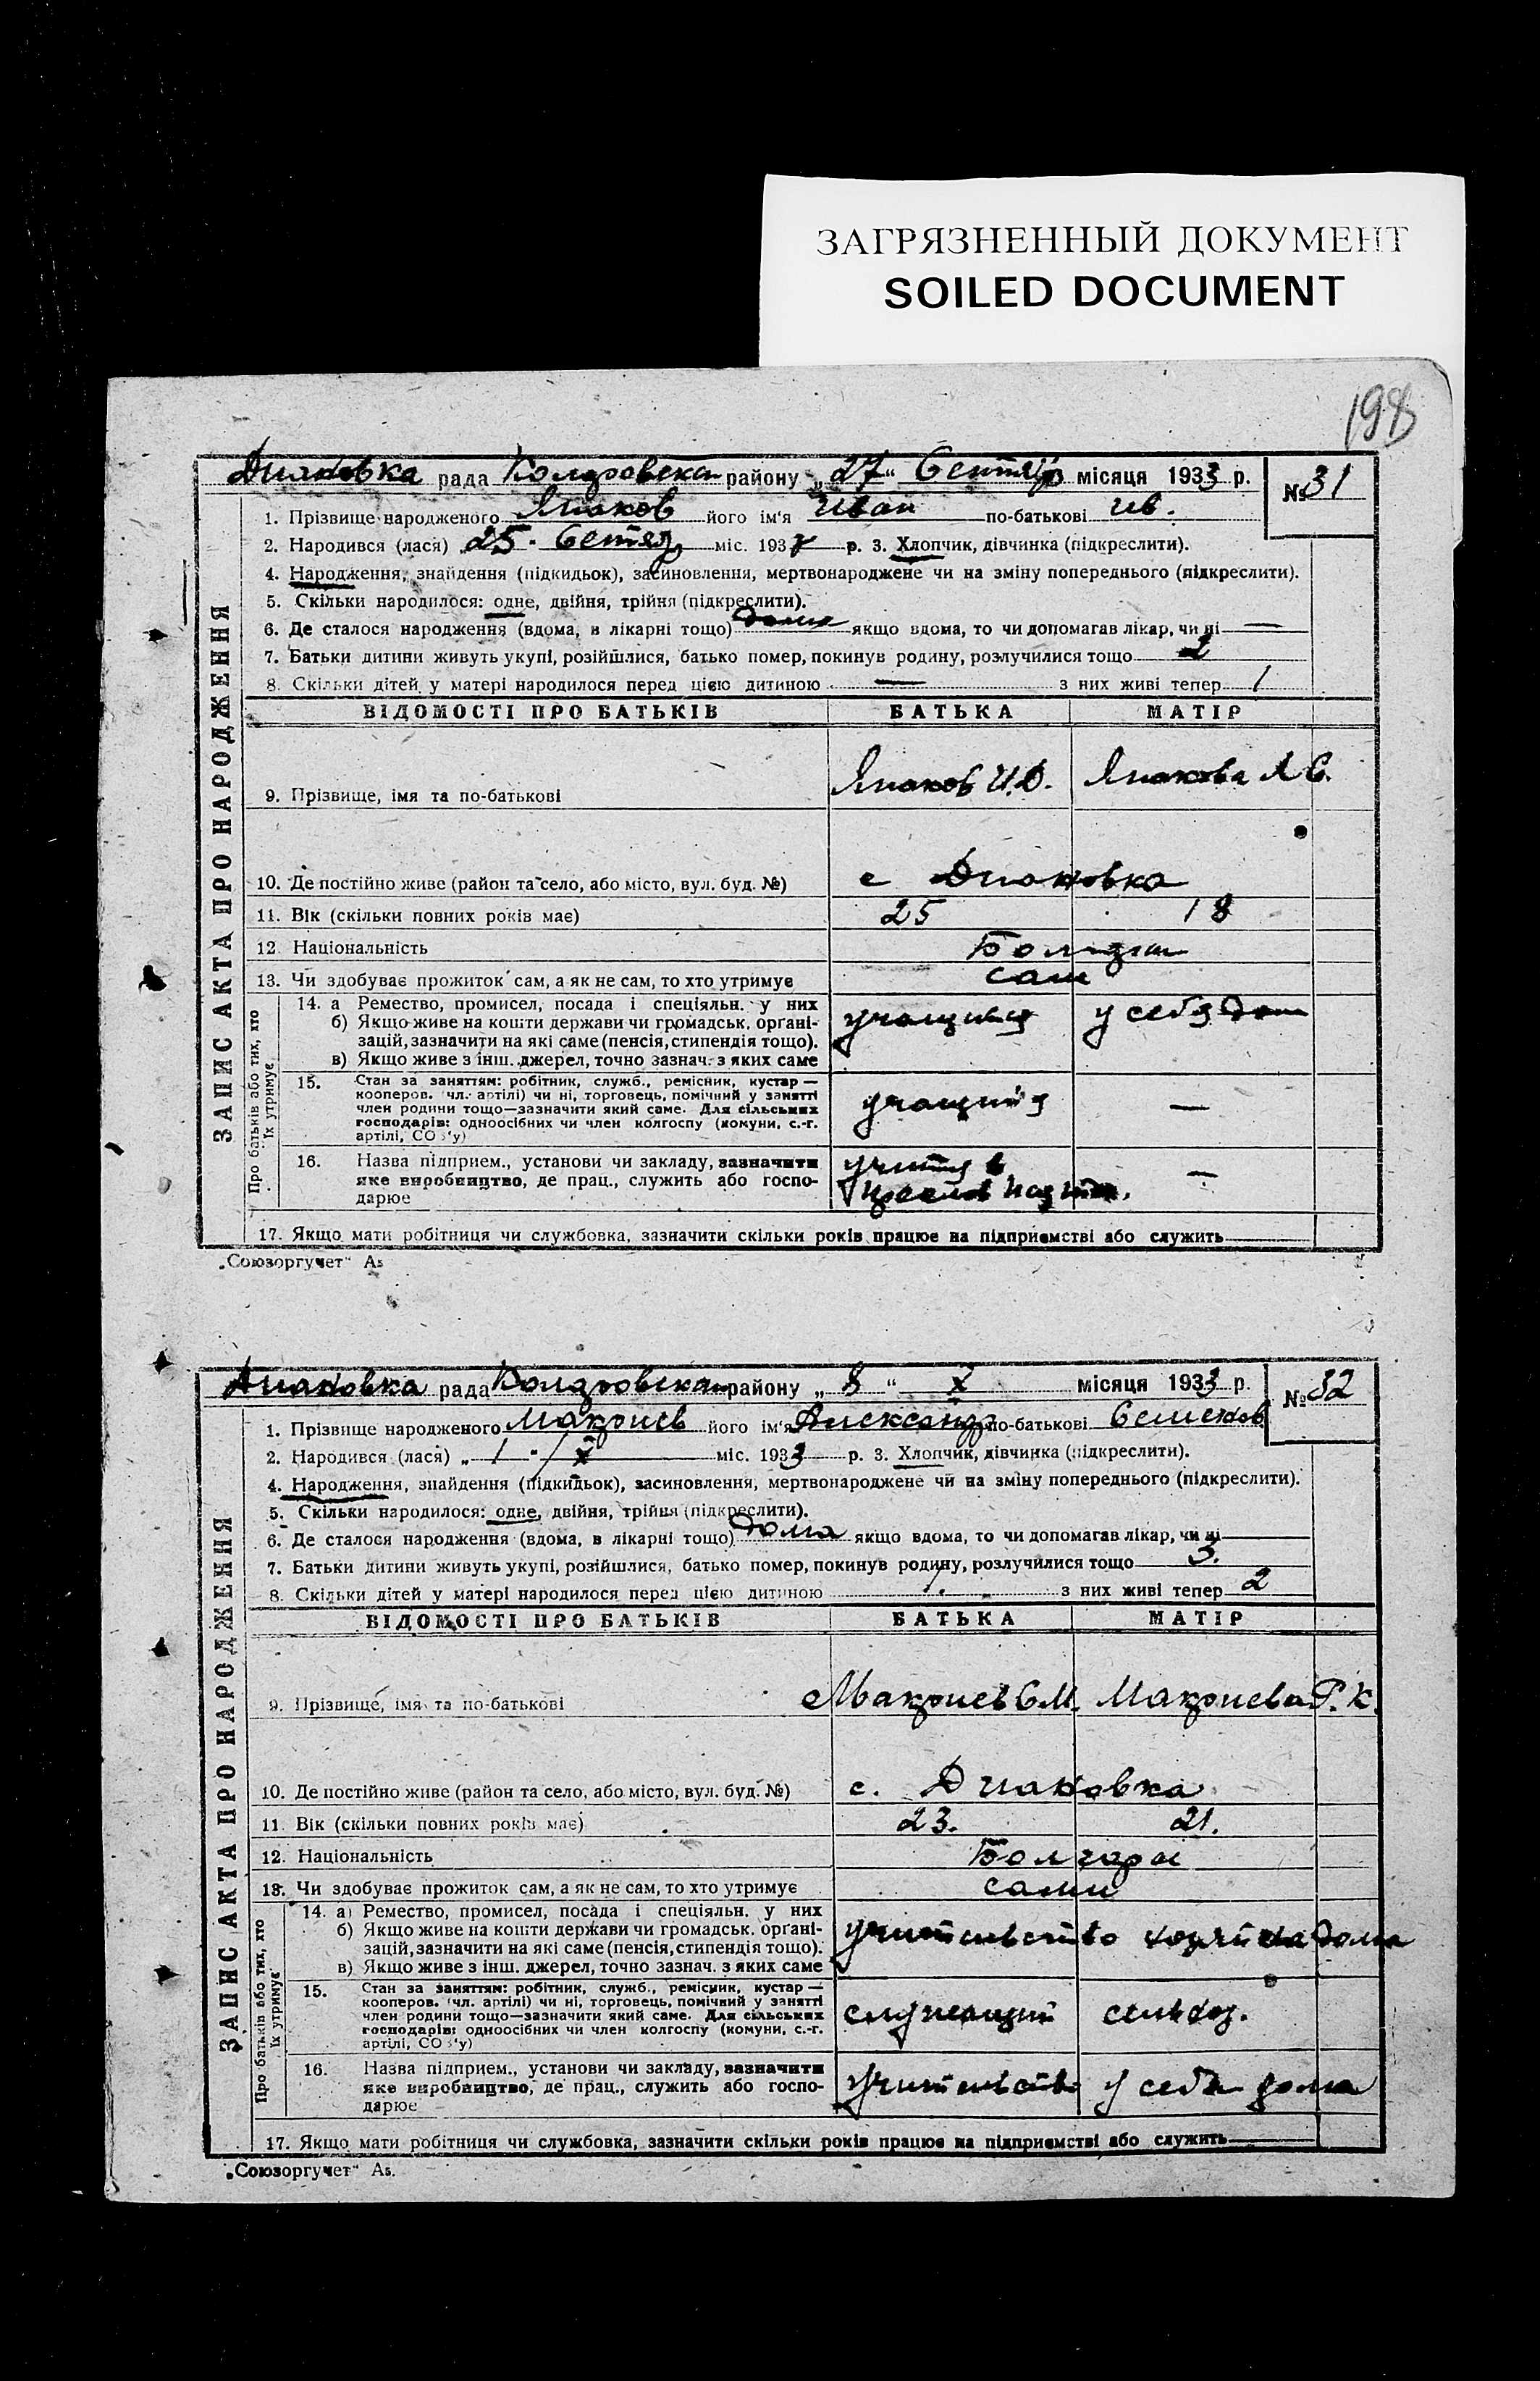 ЗАГРЯЗНЕННЫЙ ДОКУМЕНТ
SOILED DOCUMENT
198
Диановка рада Коларовская району „27“ Сентябр місяця 1933 р. № 31
1. Прізвище народженого його ім'я Иван по-батькові Ив.
2. Народився (лася) 25 міс. 193 р. 3. Хлопчик, дівчинка (підкреслити).
4. Народження, знайдення (підкидьок), засиновлення, мертвонароджене чи на зміну попереднього (підкреслити).
5. Скільки народилося: одне, двійня, трійня (підкреслити).
6. Де сталося народження (вдома, в лікарні тощо) дома якщо вдома, то чи допомагав лікар, чи ні —
7. Батьки дитини живуть укупі, розійшлися, батько помер, покинув родину, розлучилися тощо 2
8. Скільки дітей у матері народилося перед цією дитиною — з них живі тепер 1
ЗАПИС АКТА ПРО НАРОДЖЕННЯ
ВІДОМОСТІ ПРО БАТЬКІВ БАТЬКА МАТІР
9. Прізвище, імя та по-батькові
10. Де постійно живе (район та село, або місто, вул. буд. №) с Диановка
11. Вік (скільки повних років має) 25 18
12 Національність
13. Чи здобуває прожиток сам, а як не сам, то хто утримує сам
Про батьків або тих, хто їх утримує
14. а Ремество, промисел, посада і спеціяльн. у них
б) Якщо живе на кошти держави чи громадськ. органі-
зацій, зазначити на які саме (пенсія, стипендія тощо).
в) Якщо живе з інш. джерел, точно зазнач. з яких саме
учащийся у себя дом
15. Стан за заняттям: робітник, служб., ремісник, кустар —
кооперов. чл. артілі) чи ні, торговець, помічний у занятті
член родини тощо—зазначити який саме. Для сільських
господарів: одноосібних чи член колгоспу (комуни, с.-г.
артілі, СОЗ'у)
—
16. Назва підприєм., установи чи закладу, зазначити
яке виробництво, де прац., служить або госпо-
дарює
—
17. Якщо мати робітниця чи службовка, зазначити скільки років працює на підприємстві або служить
„Союзоргучет“ А5
Диановка рада Коларовская району „8“ X місяця 1933 р. № 32
1. Прізвище народженого Макриев його ім'я Александр по-батькові Семенов
2. Народився (лася) „1“ X міс. 1933 р. 3. Хлопчик, дівчинка (підкреслити).
4. Народження, знайдення (підкидьок), засиновлення, мертвонароджене чи на зміну попереднього (підкреслити).
5. Скільки народилося: одне, двійня, трійня (підкреслити).
6. Де сталося народження (вдома, в лікарні тощо) дома якщо вдома, то чи допомагав лікар, чи ні
7. Батьки дитини живуть укупі, розійшлися, батько помер, покинув родину, розлучилися тощо 3.
8. Скільки дітей у матері народилося перед цією дитиною 1. з них живі тепер 2
ЗАПИС АКТА ПРО НАРОДЖЕННЯ
ВІДОМОСТІ ПРО БАТЬКІВ БАТЬКА МАТІР
9. Прізвище, імя та по-батькові Макриев С М. Макриева Р. К.
10. Де постійно живе (район та село, або місто, вул. буд. №) с. Диановка
11 Вік (скільки повних років має) 23. 21.
12. Національність Болгары
13. Чи здобуває прожиток сам, а як не сам, то хто утримує сами
Про батьків або тих, хто їх утримує
14. а) Ремество, промисел, посада і спеціяльн. у них
б) Якщо живе на кошти держави чи громадськ. органі-
зацій, зазначити на які саме (пенсія, стипендія тощо).
в) Якщо живе з інш. джерел, точно зазнач. з яких саме
учительство хозяйка дома
15. Стан за заняттям: робітник, служб., ремісник, кустар —
кооперов. чл. артілі) чи ні, торговець, помічний у занятті
член родини тощо—зазначити який саме. Для сільських
господарів: одноосібних чи член колгоспу (комуни, с.-г.
артілі, СОЗ'у)
служащий сельхоз.
16. Назва підприєм., установи чи закладу, зазначити
яке виробництво, де прац., служить або госпо-
дарює
Учительство у себя дома
17. Якщо мати робітниця чи службовка, зазначити скільки років працює на підприємстві або служить
„Союзоргучет“ А5.